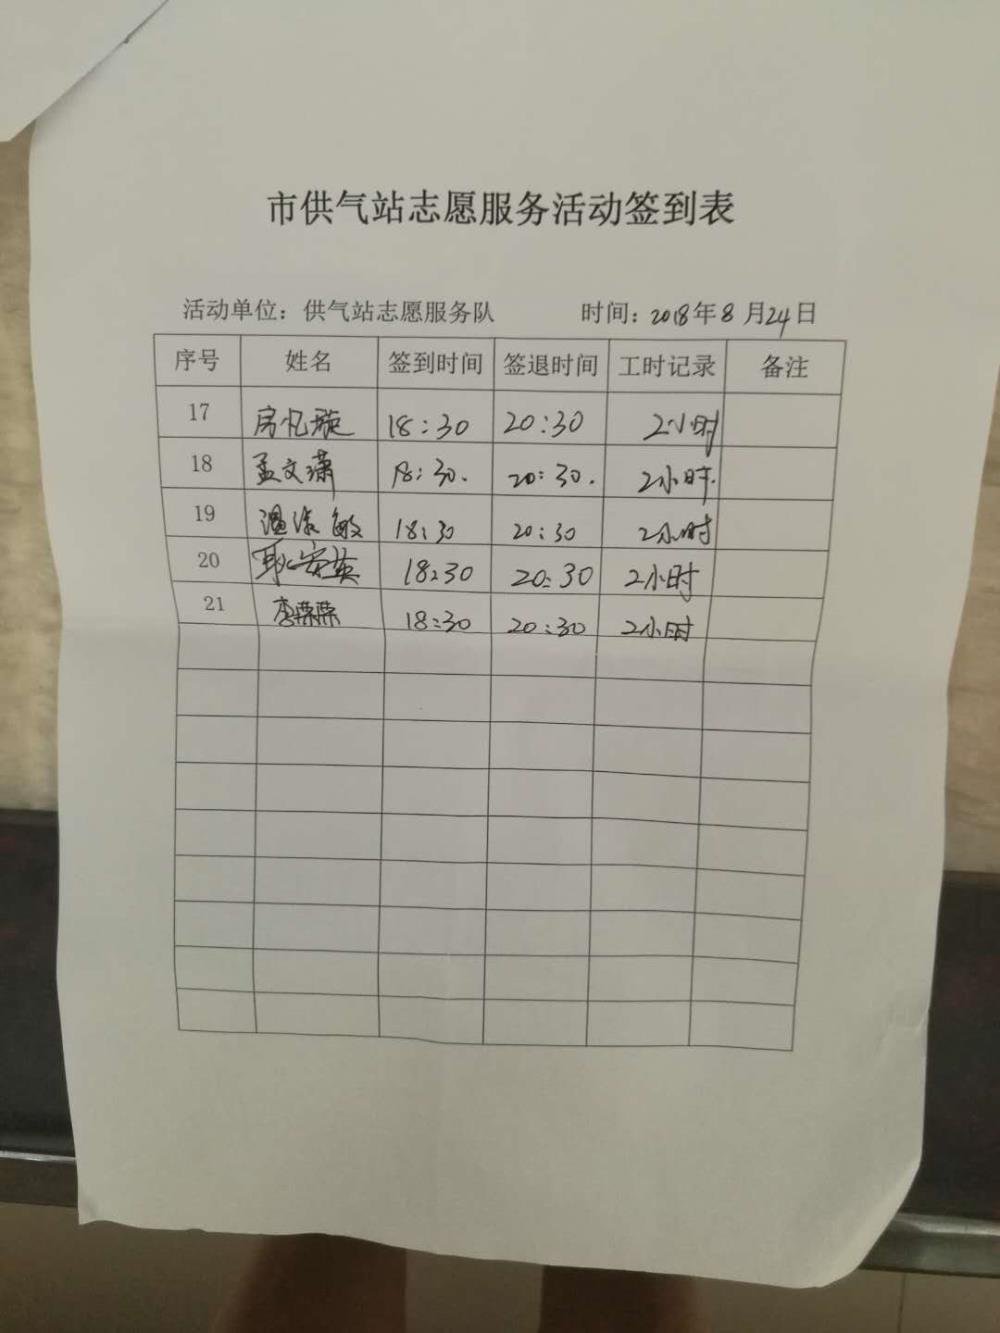 市供气站志愿服务活动签到表
活动单位：供气站志愿服务队 时间：2018年8月24日
序号 姓名 签到时间 签退时间 工时记录 备注
17 房忆璇 18:30 20:30 2小时
18 孟文潇 18:30. 20:30. 2小时.
19 温 敏 18:30 20:30 2小时
20 耿安英 18:30 20:30 2小时
21 李荣荣 18:30 20:30 2小时